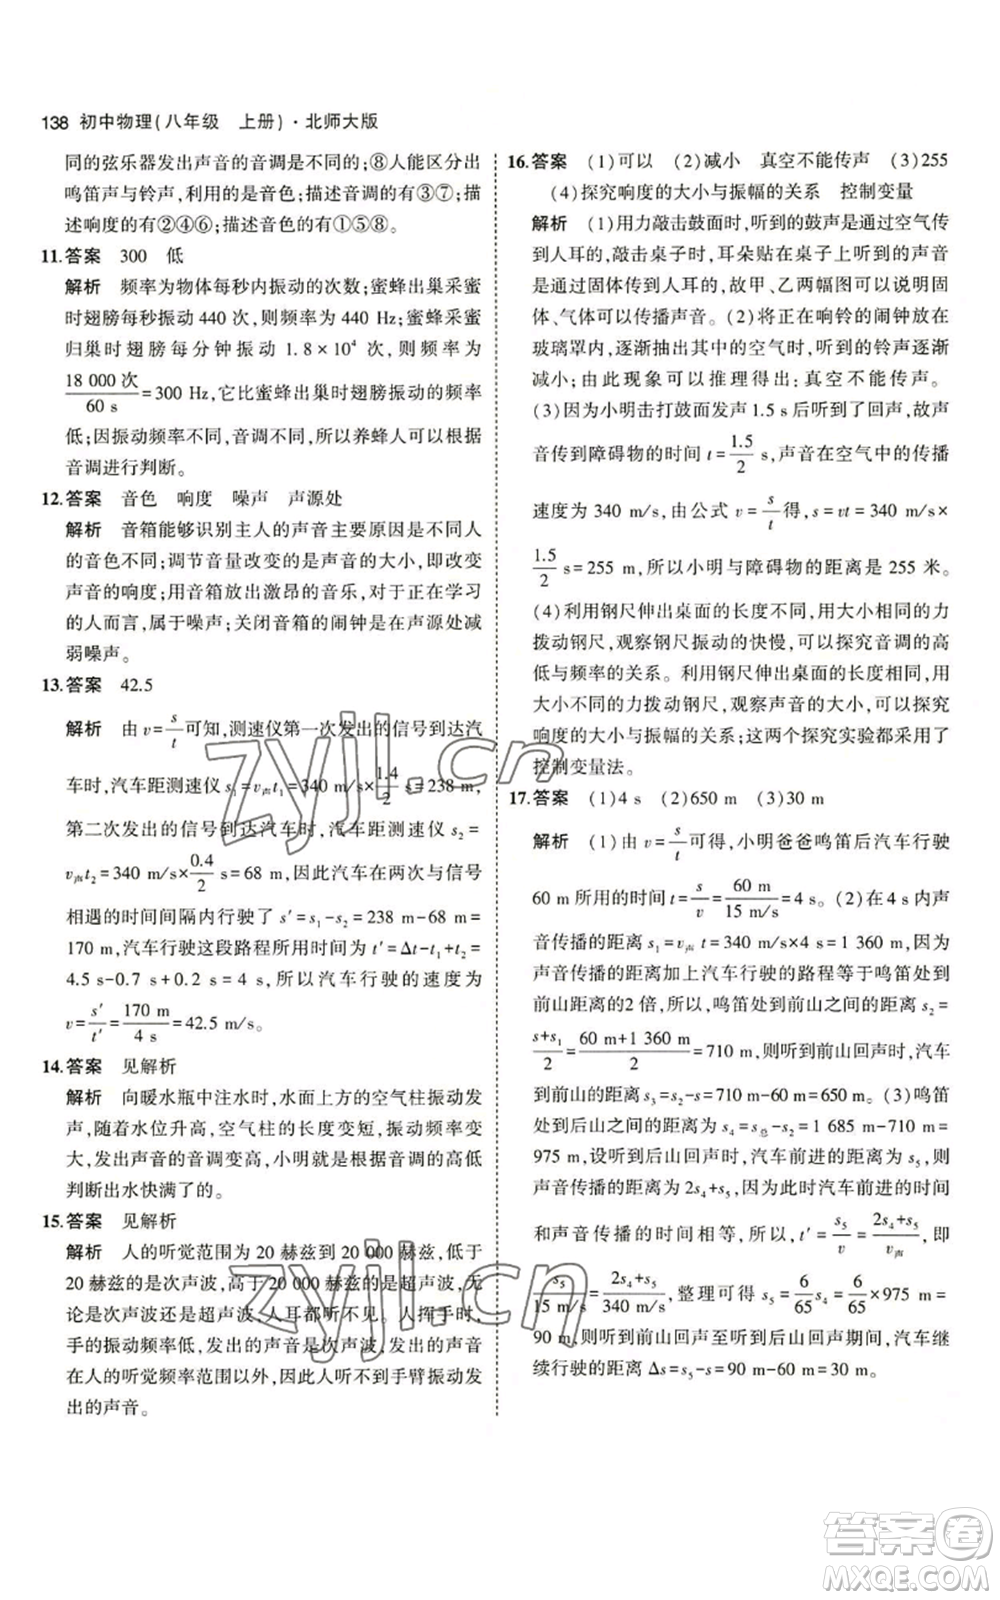 138 初中物理(八年级　上册)·北师大版
同的弦乐器发出声音的音调是不同的;⑧人能区分出
鸣笛声与铃声,利用的是音色;描述音调的有③⑦;描
述响度的有②④⑥;描述音色的有①⑤⑧。
11.答案　300　低
解析　频率为物体每秒内振动的次数;蜜蜂出巢采蜜
时翅膀每秒振动 440 次,则频率为 440 Hz;蜜蜂采蜜
归巢时翅膀每分钟振动 1.8×10⁴ 次,则频率为
18 000 次/60 s=300 Hz,它比蜜蜂出巢时翅膀振动的频率
低;因振动频率不同,音调不同,所以养蜂人可以根据
音调进行判断。
12.答案　音色　响度　噪声　声源处
解析　音箱能够识别主人的声音主要原因是不同人
的音色不同;调节音量改变的是声音的大小,即改变
声音的响度;用音箱放出激昂的音乐,对于正在学习
的人而言,属于噪声;关闭音箱的闹钟是在声源处减
弱噪声。
13.答案　42.5
解析　由 v=s/t可知,测速仪第一次发出的信号到达汽
车时,汽车距测速仪 s₁=v声t₁=340 m/s×1.4/2 s=238 m,
第二次发出的信号到达汽车时,汽车距测速仪 s₂=
v声t₂=340 m/s×0.4/2 s=68 m,因此汽车在两次与信号
相遇的时间间隔内行驶了 s′=s₁-s₂=238 m-68 m=
170 m,汽车行驶这段路程所用时间为 t′=Δt-t₁+t₂=
4.5 s-0.7 s+0.2 s=4 s,所以汽车行驶的速度为
v=s′/t′=170 m/4 s=42.5 m/s。
14.答案　见解析
解析　向暖水瓶中注水时,水面上方的空气柱振动发
声,随着水位升高,空气柱的长度变短,振动频率变
大,发出声音的音调变高,小明就是根据音调的高低
判断出水快满了的。
15.答案　见解析
解析　人的听觉范围为 20 赫兹到 20 000 赫兹,低于
20 赫兹的是次声波,高于 20 000 赫兹的是超声波,无
论是次声波还是超声波,人耳都听不见。人挥手时,
手的振动频率很低,大约只有几赫兹,发出的声音
在人的听觉频率范围以外,因此人听不到手臂振动发
出的声音。
16.答案　(1)可以　(2)减小　真空不能传声　(3)255
(4)探究响度的大小与振幅的关系　控制变量
解析　(1)用力敲击鼓面时,听到的鼓声是通过空气传
到人耳的;而敲击桌子时,耳朵贴在桌子上听到的声音
是通过固体传到人耳的,故甲、乙两幅图可以说明固
体、气体可以传播声音。(2)将正在响铃的闹钟放在
玻璃罩内,逐渐抽出其中的空气时,听到的铃声逐渐
减小;由此现象可以推理得出:真空不能传声。
(3)因为小明击打鼓面发声 1.5 s 后听到了回声,故声
音传到障碍物的时间 t=1.5/2 s,声音在空气中的传播
速度为 340 m/s,由公式 v=s/t得,s=vt=340 m/s×
1.5/2 s=255 m,所以小明与障碍物的距离是 255 米。
(4)利用钢尺伸出桌面的长度不同,用大小相同的力
拨动钢尺,观察钢尺振动的快慢,可以探究音调的高
低与频率的关系。利用钢尺伸出桌面的长度相同,用
大小不同的力拨动钢尺,观察声音的大小,可以探究
响度的大小与振幅的关系;这两个探究实验都采用了
控制变量法。
17.答案　(1)4 s　(2)650 m　(3)30 m
解析　(1)由 v=s/t可得,小明爸爸鸣笛后汽车行驶
60 m 所用的时间 t=s/v=60 m/15 m/s=4 s。(2)在 4 s 内声
音传播的距离 s₁=v声 t=340 m/s×4 s=1 360 m,因为
声音传播的距离加上汽车行驶的路程等于鸣笛处到
前山距离的2 倍,所以,鸣笛处到前山之间的距离 s₂=
s+s₁/2=60 m+1 360 m/2=710 m,则听到前山回声时,汽车
到前山的距离 s₃=s₂-s=710 m-60 m=650 m。(3)鸣笛
处到后山之间的距离为 s₄=s总-s₂=1 685 m-710 m=
975 m,设听到后山回声时,汽车前进的距离为 s₅,则
声音传播的距离为 2s₄+s₅,因为汽车前进的时间
和声音传播的时间相等,所以,t′=s₅/v=2s₄+s₅/v声,即
s₅/15 m/s=2s₄+s₅/340 m/s,整理可得 s₅=6/65 s₄=6/65×975 m=
90 m,所以听到前山回声到听到后山回声期间,汽车继
续行驶的距离 Δs=s₅-s=90 m-60 m=30 m。
zyjl.cn
zyjl.cn
答案卷
MXQE.COM